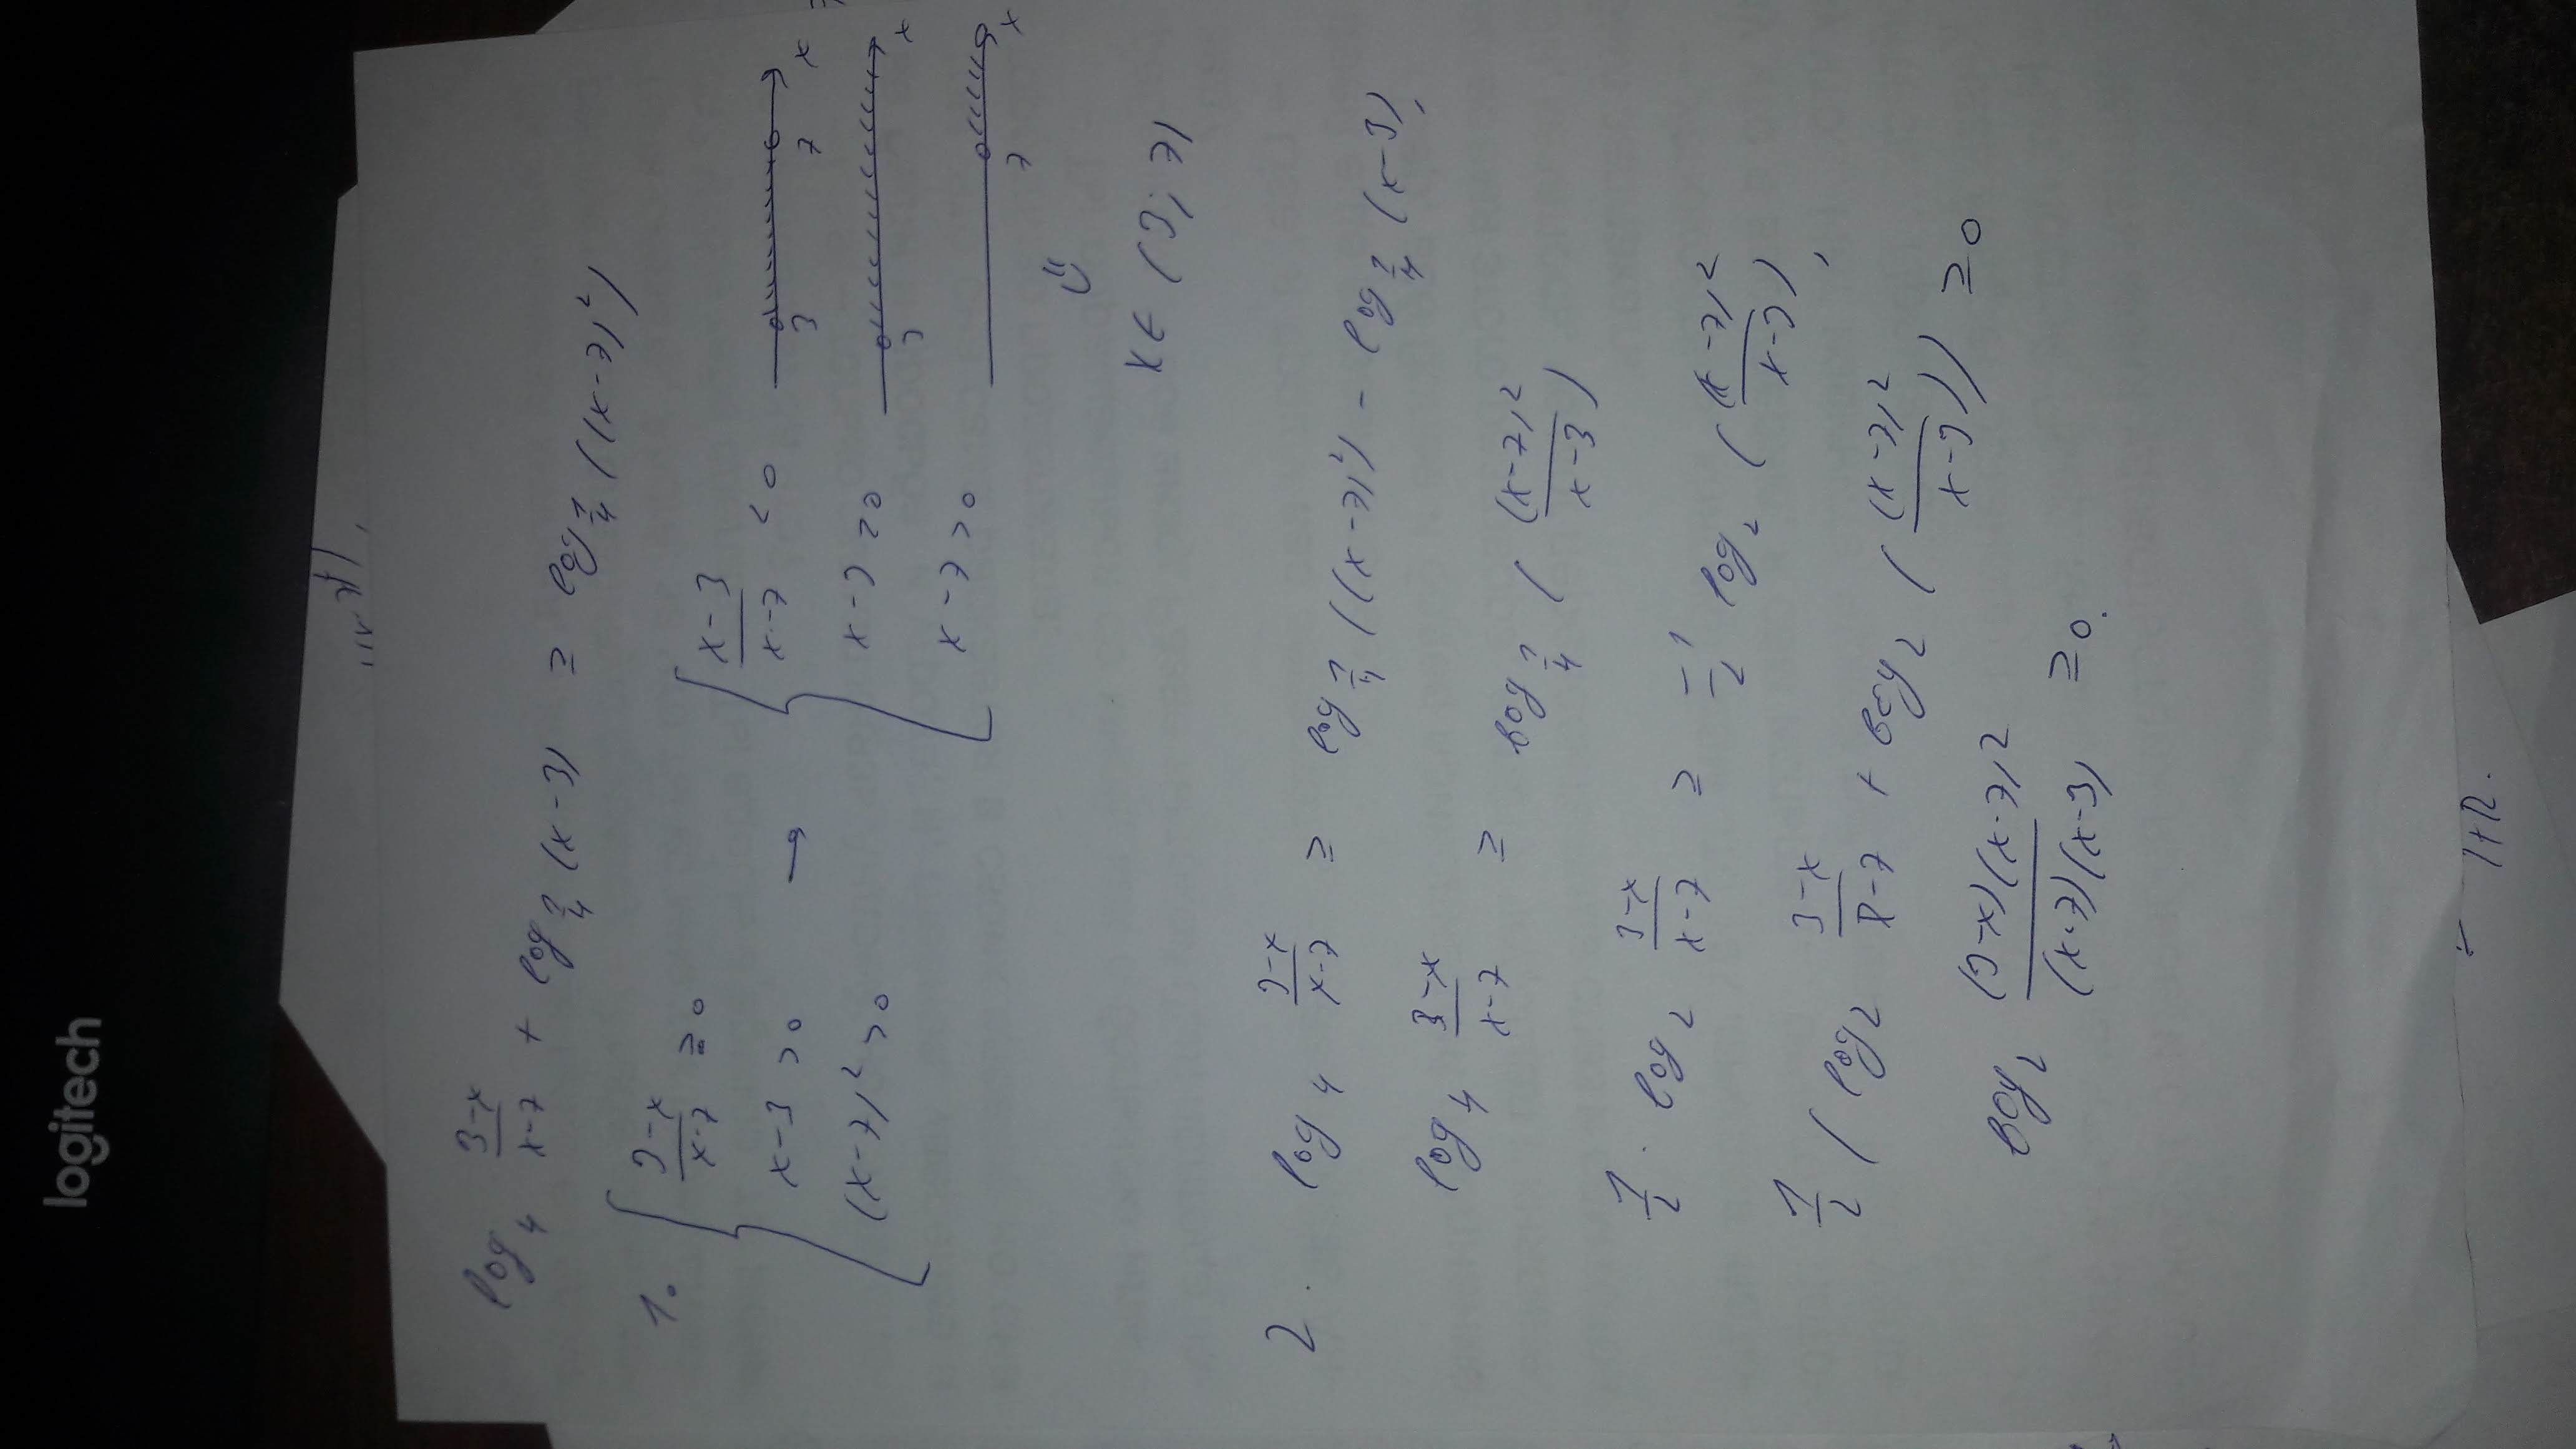 logitech
log₄ (3-x)/(x-7) + log_{1/4} (x-3) ≥ log_{1/4} ((x-7)²)
1. { (3-x)/(x-7) ≥ 0 → { (x-3)/(x-7) < 0 3 7 x
x-3 > 0 x-3 > 0 3 x
(x-7)² > 0 x-7 > 0 7 x
x ∈ (3; 7)
2. log₄ (3-x)/(x-7) ≥ log_{1/4} ((x-7)²) - log_{1/4} (x-3),
log₄ (3-x)/(x-7) ≥ log_{1/4} ( (x-7)²/(x-3) )
1/2 · log₂ (3-x)/(x-7) ≥ -1/2 log₂ ( (x-7)²/(x-3) ),
1/2 ( log₂ (3-x)/(x-7) + log₂ ( (x-7)²/(x-3) ) ) ≥ 0
log₂ (3-x)(x-7)²/(x-7)(x-3) ≥ 0.